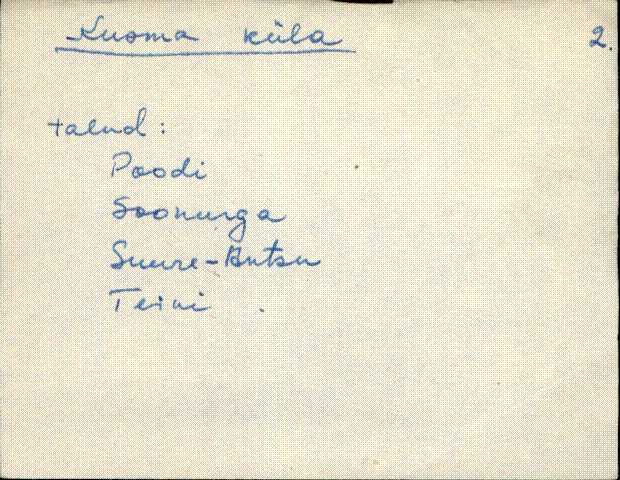 Kusma küla
2.
talud:
Poodi
Soonurga
Suure-Antsu
Teini